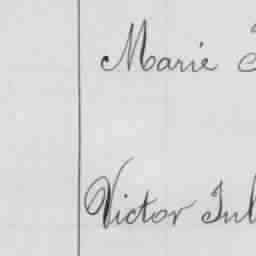 Marie
Victor Jul